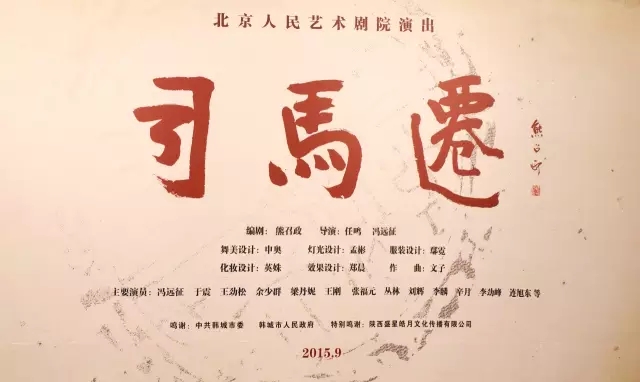 北京人民艺术剧院演出
司馬遷
熊召政
编剧：熊召政 导演：任鸣 冯远征
舞美设计：申奥 灯光设计：孟彬 服装设计：鄢霓
化妆设计：英姝 效果设计：郑晨 作曲：文子
主要演员：冯远征 于震 王劲松 余少群 梁丹妮 王刚 张福元 丛林 刘辉 李麟 辛月 李劲峰 连旭东 等
鸣谢：中共韩城市委 韩城市人民政府 特别鸣谢：陕西盛星皓月文化传播有限公司
2015.9